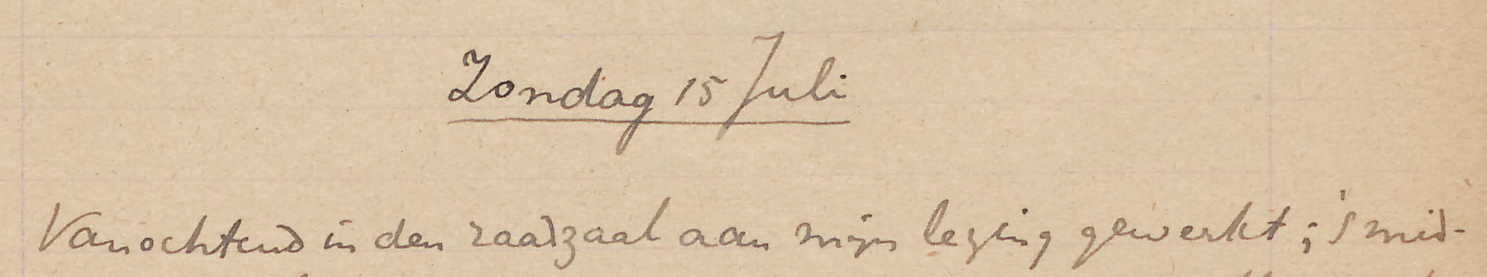 Zondag 15 Juli
Vanochtend in den raadzaal aan mijn lezing gewerkt; 's mid-